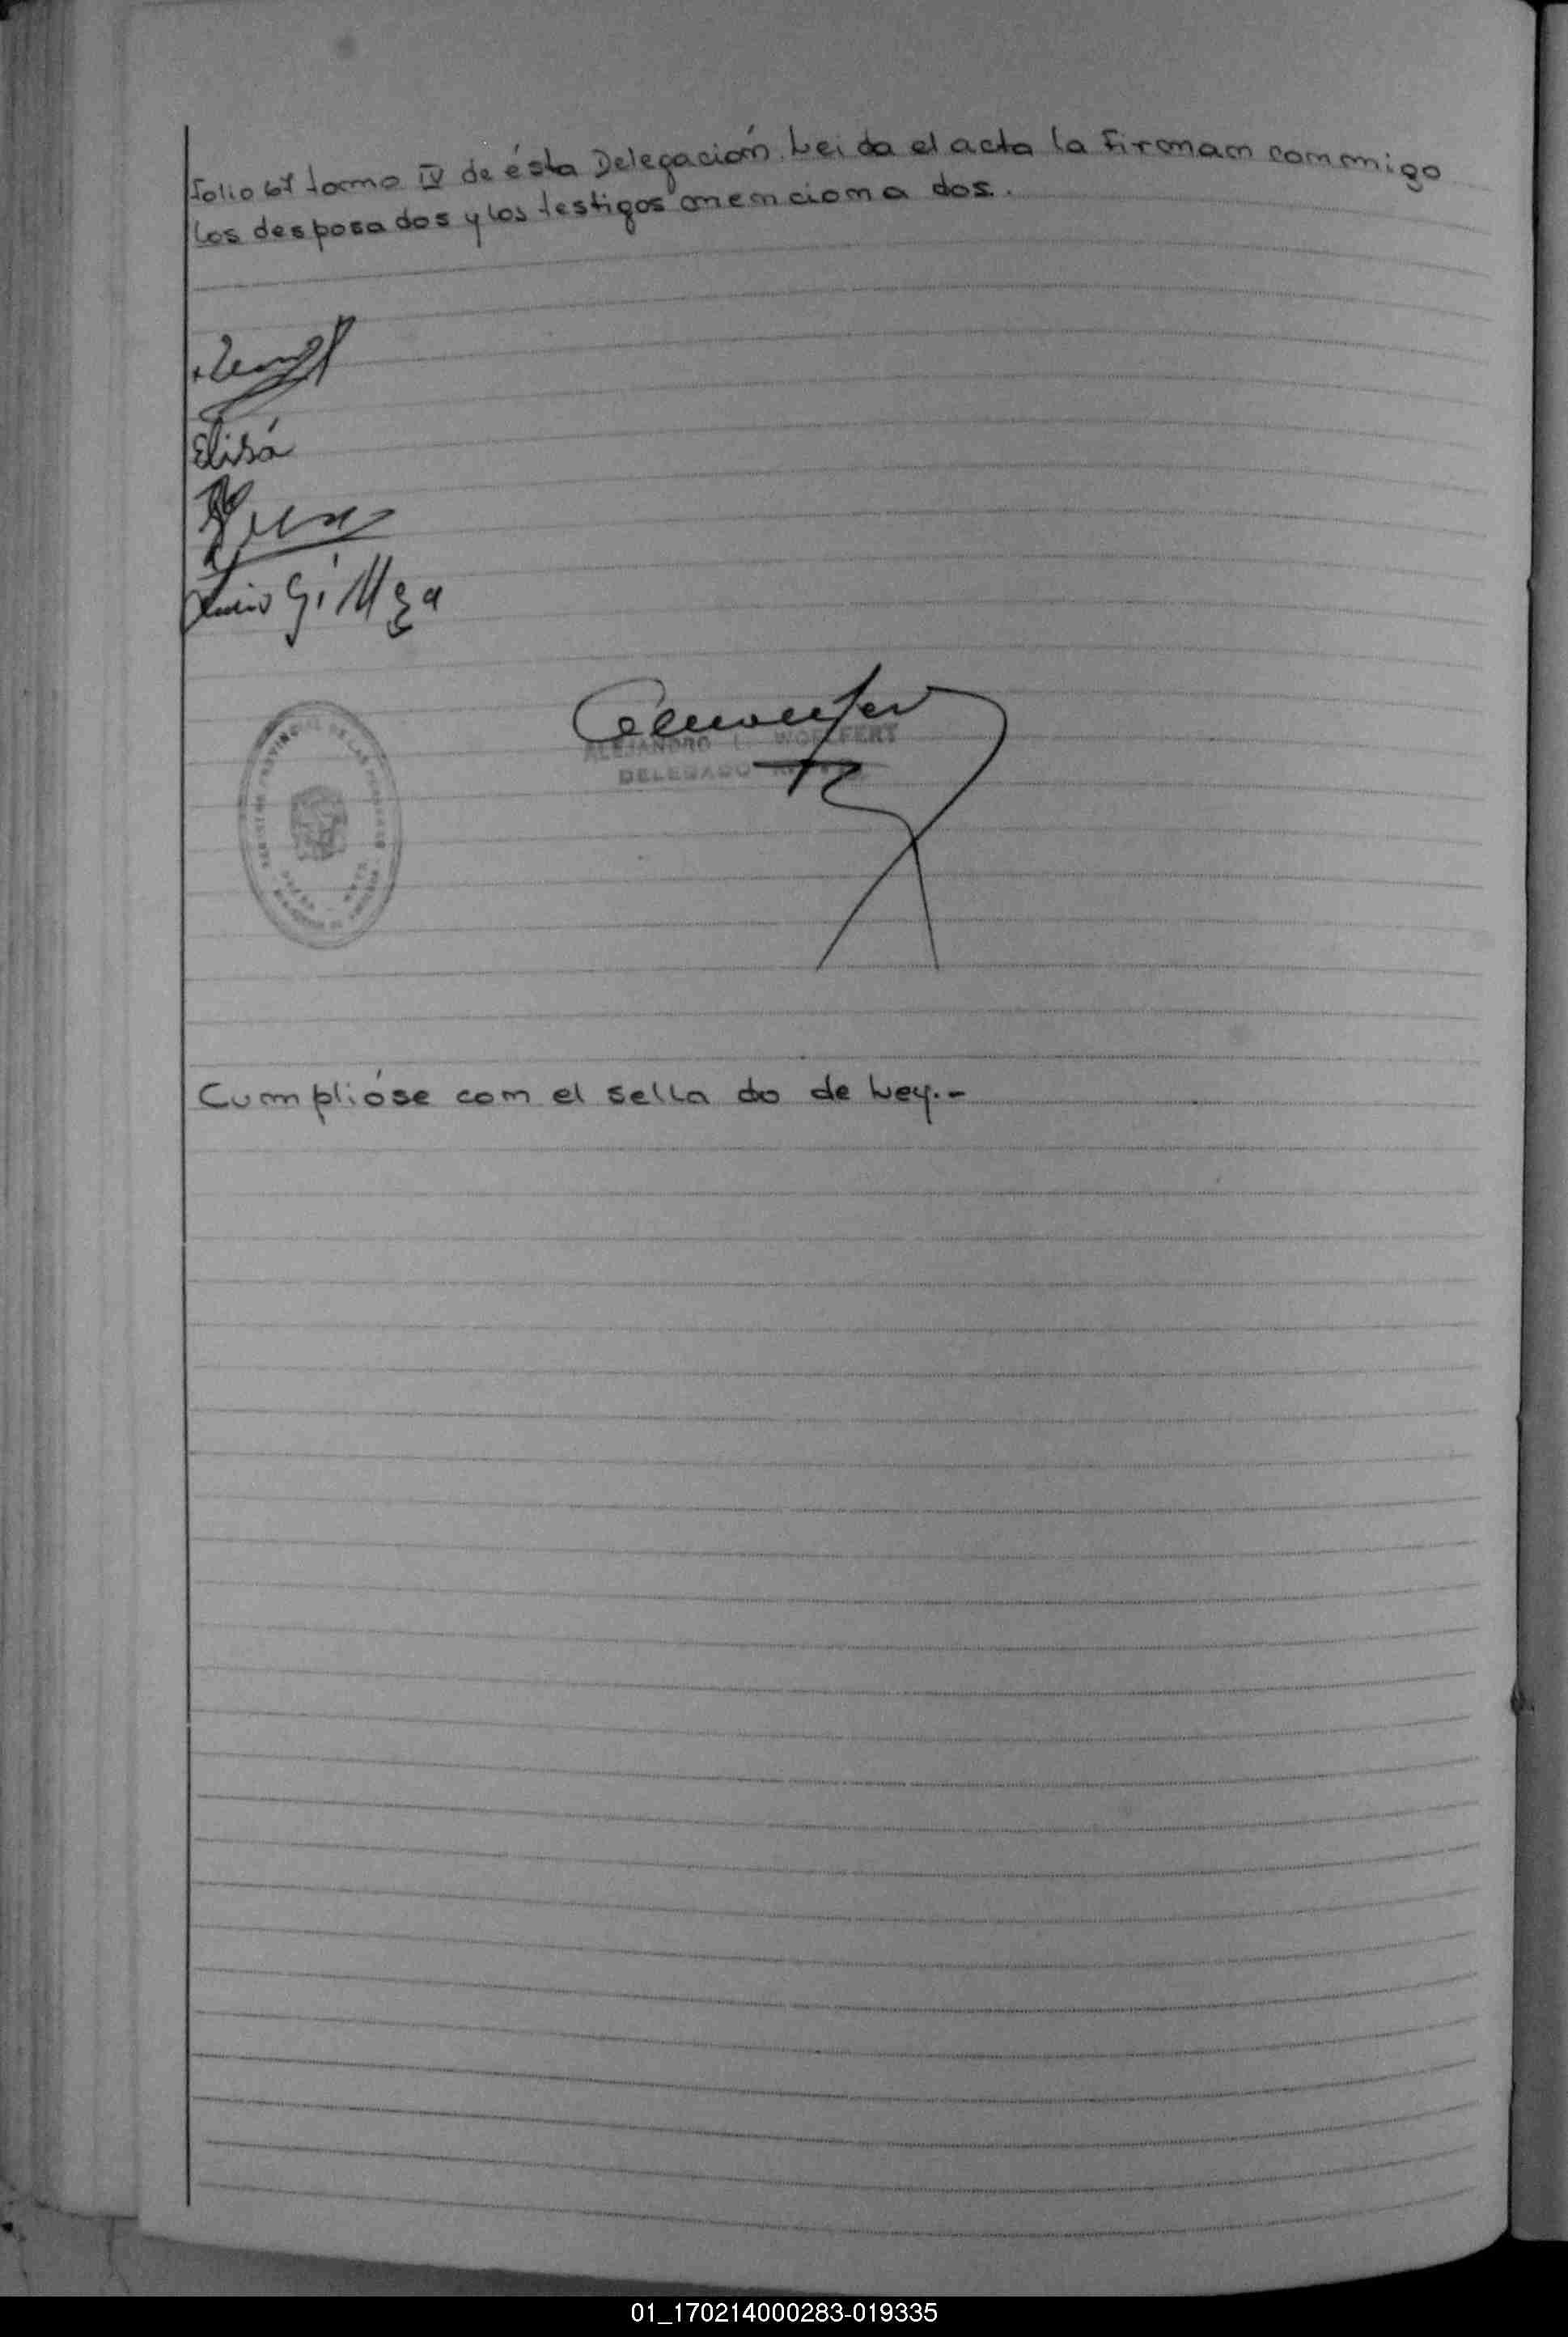 folio 67 tomo IV de ésta Delegación. Leida el acta la firman conmigo
los desposados y los testigos mencionados.
Elisa
ALEJANDRO L. WOELFERT
DELEGADO
Cumplióse con el sellado de Ley.-
01_170214000283-019335